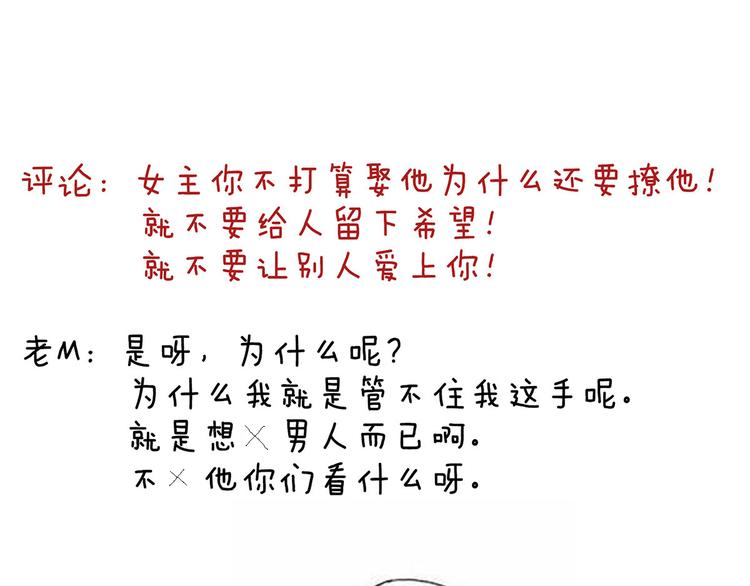 评论：女主你不打算娶他为什么还要撩他！
就不要给人留下希望！
就不要让别人爱上你！
老M：是呀，为什么呢？
为什么我就是管不住我这手呢。
就是想×男人而已啊。
不×他你们看什么呀。